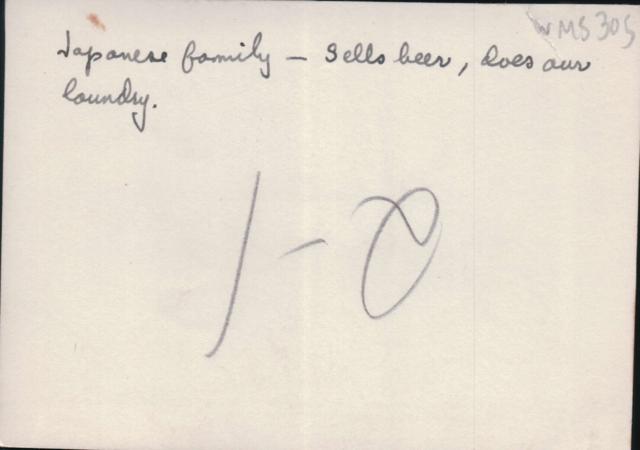 WMS 305
Japanese family — Sells beer, does our
laundry.
1-0